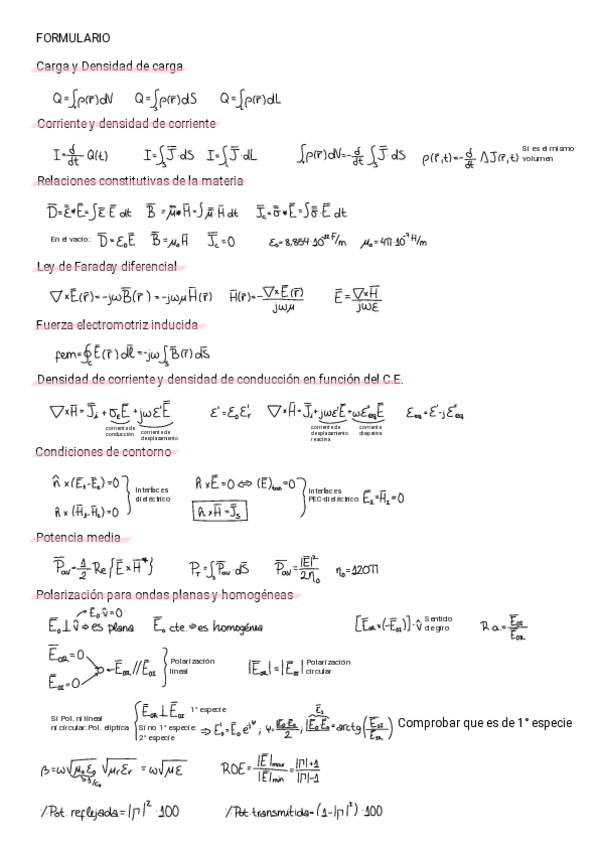 FORMULARIO
Carga y Densidad de carga
Q=∫ᵥρ(r̄)dV Q=∫ₛρ(r̄)dS Q=∫ρ(r̄)dL
Corriente y densidad de corriente
I=d/dt Q(t) I=∫ₛJ̄·dS I=∫J̄·dL ∫ρ(r̄)dV=-d/dt ∫ₛJ̄·dS ρ(r̄,t)=-d/dt ΔJ(r̄,t) Si es el mismo volumen
Relaciones constitutivas de la materia
D̄=ε̄*Ē=∫ε̄·Ē dt B̄=μ̄*H̄=∫μ̄·H̄ dt J̄c=σ̄*Ē=∫σ̄·Ē dt
En el vacío: D̄=ε₀Ē B̄=μ₀H̄ J̄c=0 ε₀=8,854·10⁻¹² F/m μ₀=4π·10⁻⁷ H/m
Ley de Faraday diferencial
∇×Ē(r̄)=-jωB̄(r̄)=-jωμH̄(r̄) H̄(r̄)=-∇×Ē(r̄)/jωμ Ē=∇×H̄/jωε
Fuerza electromotriz inducida
fem=∮Ē(r̄)dl̄=-jω∫ₛB̄(r̄)dS̄
Densidad de corriente y densidad de conducción en función del C.E.
∇×H̄=J̄ᵢ+σEĒ+jωε'Ē ε'=ε₀ε'ᵣ ∇×H̄=J̄ᵢ+jωε'Ē+ωε''eqĒ εeq=ε'-jε''eq
corriente de conducción corriente de desplazamiento corriente de desplazamiento reactiva corriente disipativa
Condiciones de contorno
n̂×(Ē₁-Ē₂)=0
n̂×(H̄₂-H̄₁)=0
Interfaces dieléctrico
n̂×Ē=0⇔(Ē)tan=0
n̂×H̄=J̄s
Interfaces PEC-dieléctrico Ē₂=H̄₂=0
Potencia media
P̄av=1/2 Re{Ē×H̄*} Pᵣ=∫ₛP̄av·dS̄ P̄av=|Ē|²/2η₀ η₀=120π
Polarización para ondas planas y homogéneas
Ē₀·v̂=0
Ē₀⊥v̂⇒es plana Ē₀ cte.⇒es homogénea [Ē₀R×(-Ē₀I)]·v̂ Sentido de giro Ra=Ē₀I/Ē₀R
Ē₀R=0
Ē₀I=0
Ē₀R//Ē₀I Polarización lineal |Ē₀R|=|Ē₀I| Polarización circular
Si Pol. ni lineal ni circular: Pol. elíptica
Ē₀R⊥Ē₀I 1° especie
Si no 1° especie: 2° especie
⇒Ē₀'=Ē₀e^jψ; arctg(Ē₀I/Ē₀R) Comprobar que es de 1° especie
β=ω√μ₀ε₀ √μᵣεᵣ=ω√με ROE=|Ē|max/|Ē|min=|Γ|+1/|Γ|-1
% Pot. reflejada=|Γ|²·100 % Pot transmitida=(1-|Γ|²)·100